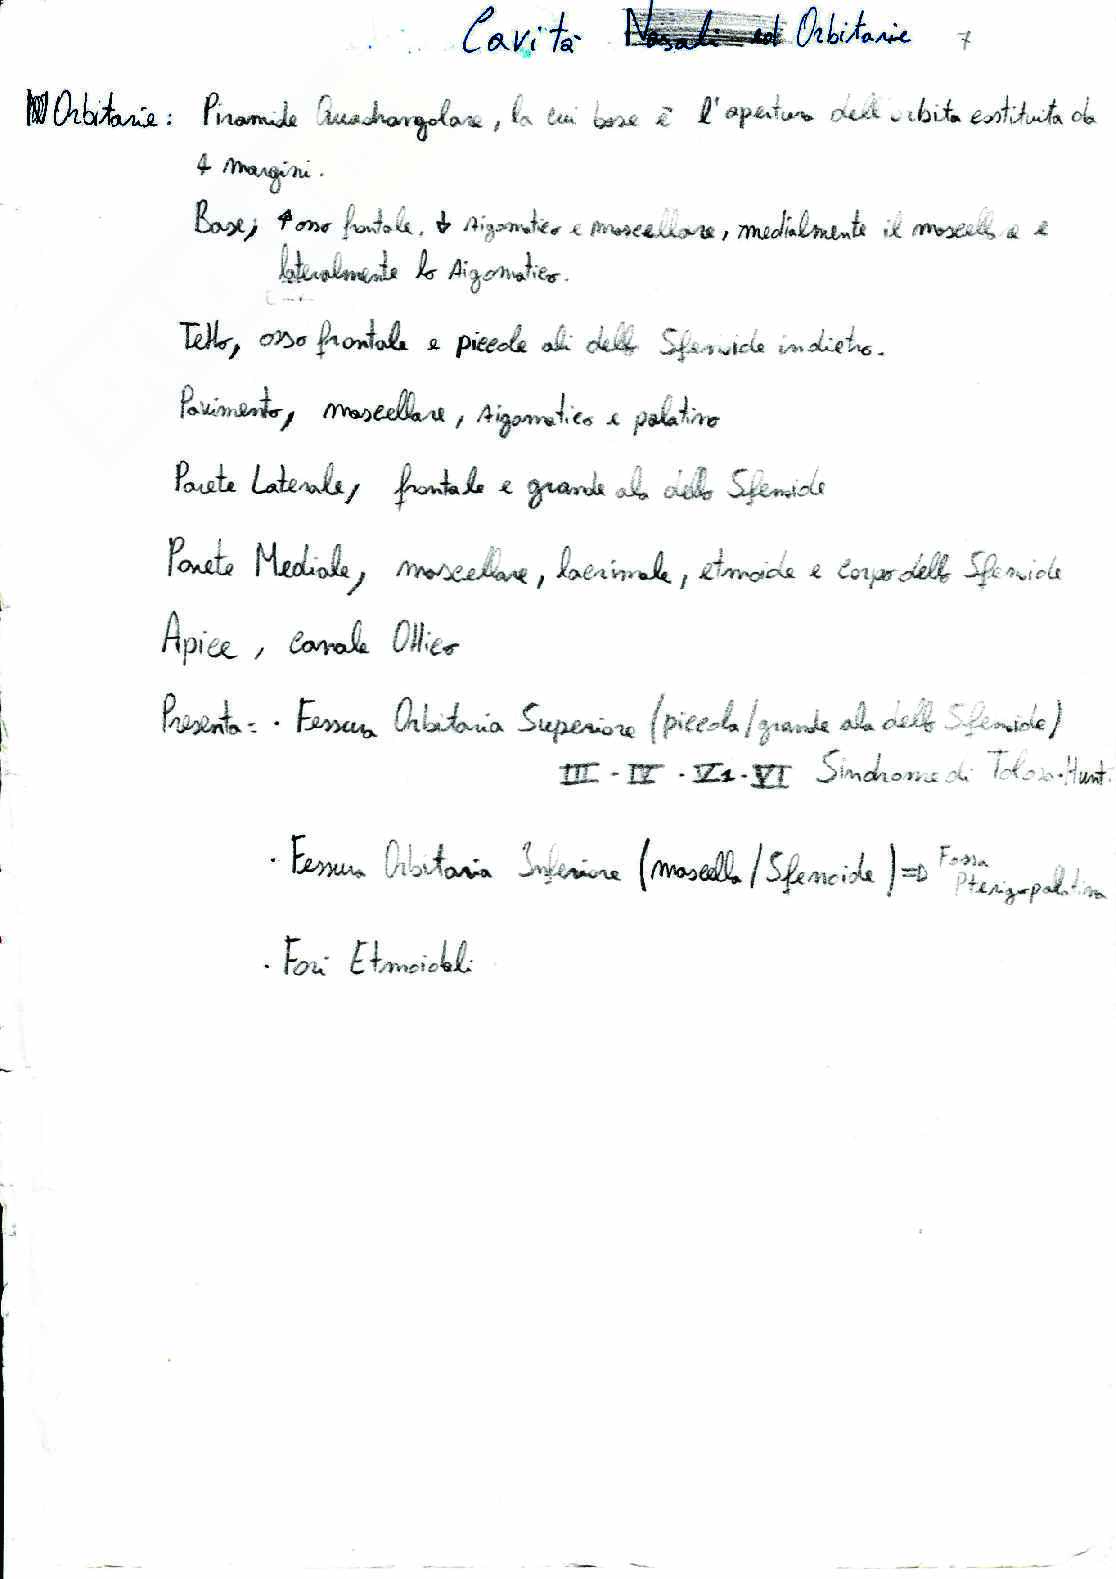 Cavità Nasali ed Orbitarie 7
Orbitarie: Piramide Quadrangolare, la cui base è l'apertura dell'orbita costituita da
4 margini.
Base, ↑ osso frontale, ↓ zigomatico e mascellare, medialmente il mascellare e
lateralmente lo zigomatico.
Tetto, osso frontale e piccole ali dello Sfenoide indietro.
Pavimento, mascellare, zigomatico e palatino
Parete Laterale, frontale e grande ala dello Sfenoide
Parete Mediale, mascellare, lacrimale, etmoide e corpo dello Sfenoide
Apice, canale Ottico
Presenta: · Fessura Orbitaria Superiore (piccola/grande ala dello Sfenoide)
III - IV - V1 - VI Sindrome di Tolosa-Hunt.
· Fessura Orbitaria Inferiore (mascella/Sfenoide) => Fossa
Pterigopalatina
· Fori Etmoidali